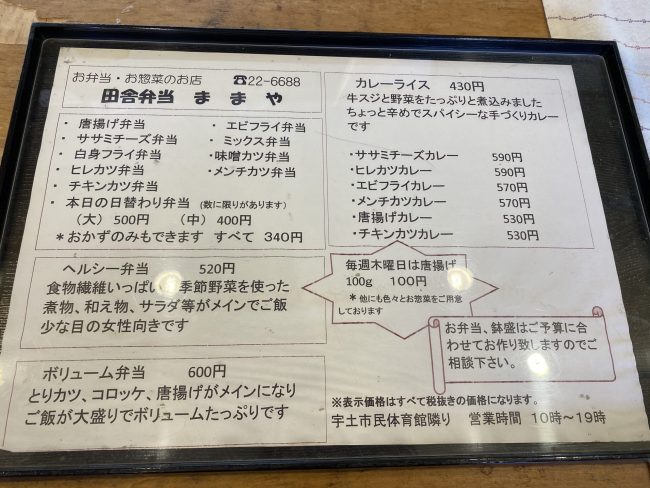 お弁当・お惣菜のお店 ☎22-6688
田舎弁当 ままや
・ 唐揚げ弁当 ・ エビフライ弁当
・ ササミチーズ弁当 ・ ミックス弁当
・ 白身フライ弁当 ・味噌カツ弁当
・ ヒレカツ弁当 ・メンチカツ弁当
・ チキンカツ弁当
・ 本日の日替わり弁当 (数に限りがあります)
(大) 500円 (中) 400円
＊おかずのみもできます すべて 340円
ヘルシー弁当 520円
食物繊維いっぱいの季節野菜を使った
煮物、和え物、サラダ等がメインでご飯
少な目の女性向きです
ボリューム弁当 600円
とりカツ、コロッケ、唐揚げがメインになり
ご飯が大盛りでボリュームたっぷりです
カレーライス 430円
牛スジと野菜をたっぷりと煮込みました
ちょっと辛めでスパイシーな手づくりカレー
です
・ササミチーズカレー 590円
・ヒレカツカレー 590円
・エビフライカレー 570円
・メンチカツカレー 570円
・唐揚げカレー 530円
・チキンカツカレー 530円
毎週木曜日は唐揚げ
100g 100円
＊他にも色々とお惣菜をご用意
しております
お弁当、鉢盛はご予算に合
わせてお作り致しますのでご
相談下さい。
※表示価格はすべて税抜きの価格になります。
宇土市民体育館隣り 営業時間 10時～19時